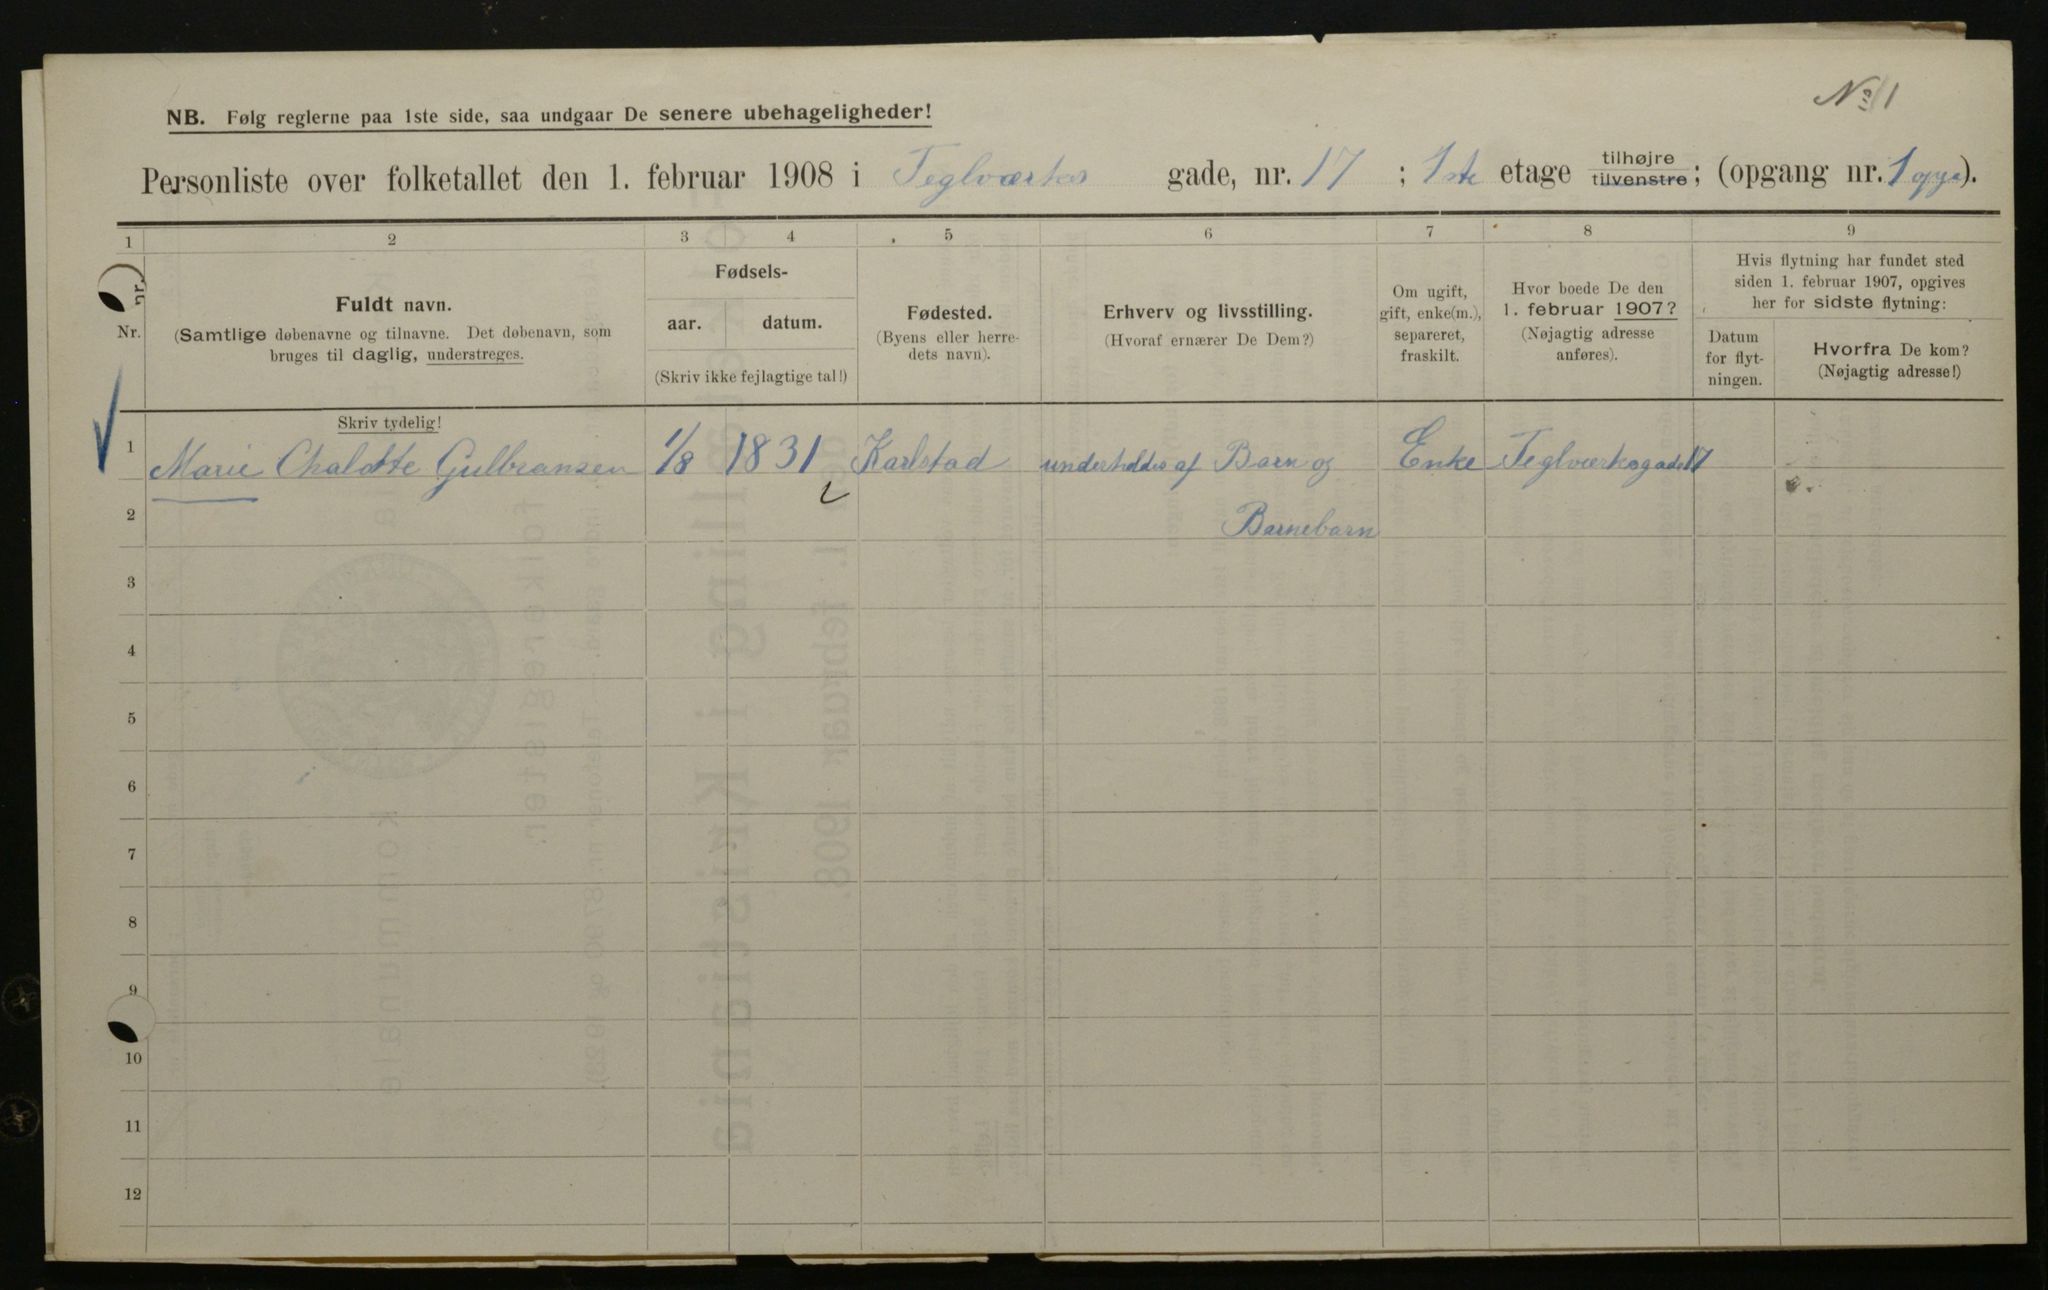 No 1
NB. Følg reglerne paa 1ste side, saa undgaar De senere ubehageligheder!
Personliste over folketallet den 1. februar 1908 i Teglværks gade, nr. 17 ; 1ste etage tilhøjre tilvenstre; (opgang nr. 1 ).
1 2 3 4 5 6 7 8 9
Nr.
Fuldt navn.
(Samtlige døbenavne og tilnavne. Det døbenavn, som
bruges til daglig, understreges.
Fødsels-
aar. datum.
(Skriv ikke fejlagtige tal!)
Fødested.
(Byens eller herre-
dets navn).
Erhverv og livsstilling.
(Hvoraf ernærer De Dem?)
Om ugift,
gift, enke(m.),
separeret,
fraskilt.
Hvor boede De den
1. februar 1907?
(Nøjagtig adresse
anføres).
Hvis flytning har fundet sted
siden 1. februar 1907, opgives
her for sidste flytning:
Datum
for flyt-
ningen.
Hvorfra De kom?
(Nøjagtig adresse!)
Skriv tydelig!
1 Marie Chalotte Gulbransen 1/8 1831 Karlstad underholdes af Barn og Enke Teglværksgade 17
2 Barnebarn
3
4
5
6
7
8
9
10
11
12